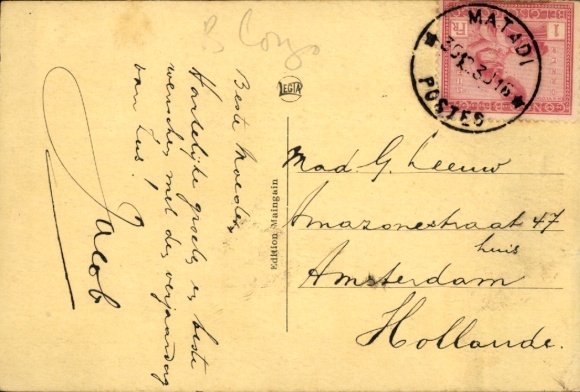 B Congo
Beste Moeder,
Hartelijke groeten en beste
wenschen met den verjaardag
van Zus!
Jacob
LEGIA
Edition Maingain
MATADI
POSTES
1
FR
CONGO
Mad. G. Leeuw
Amazonestraat 47
huis
Amsterdam
Hollande.